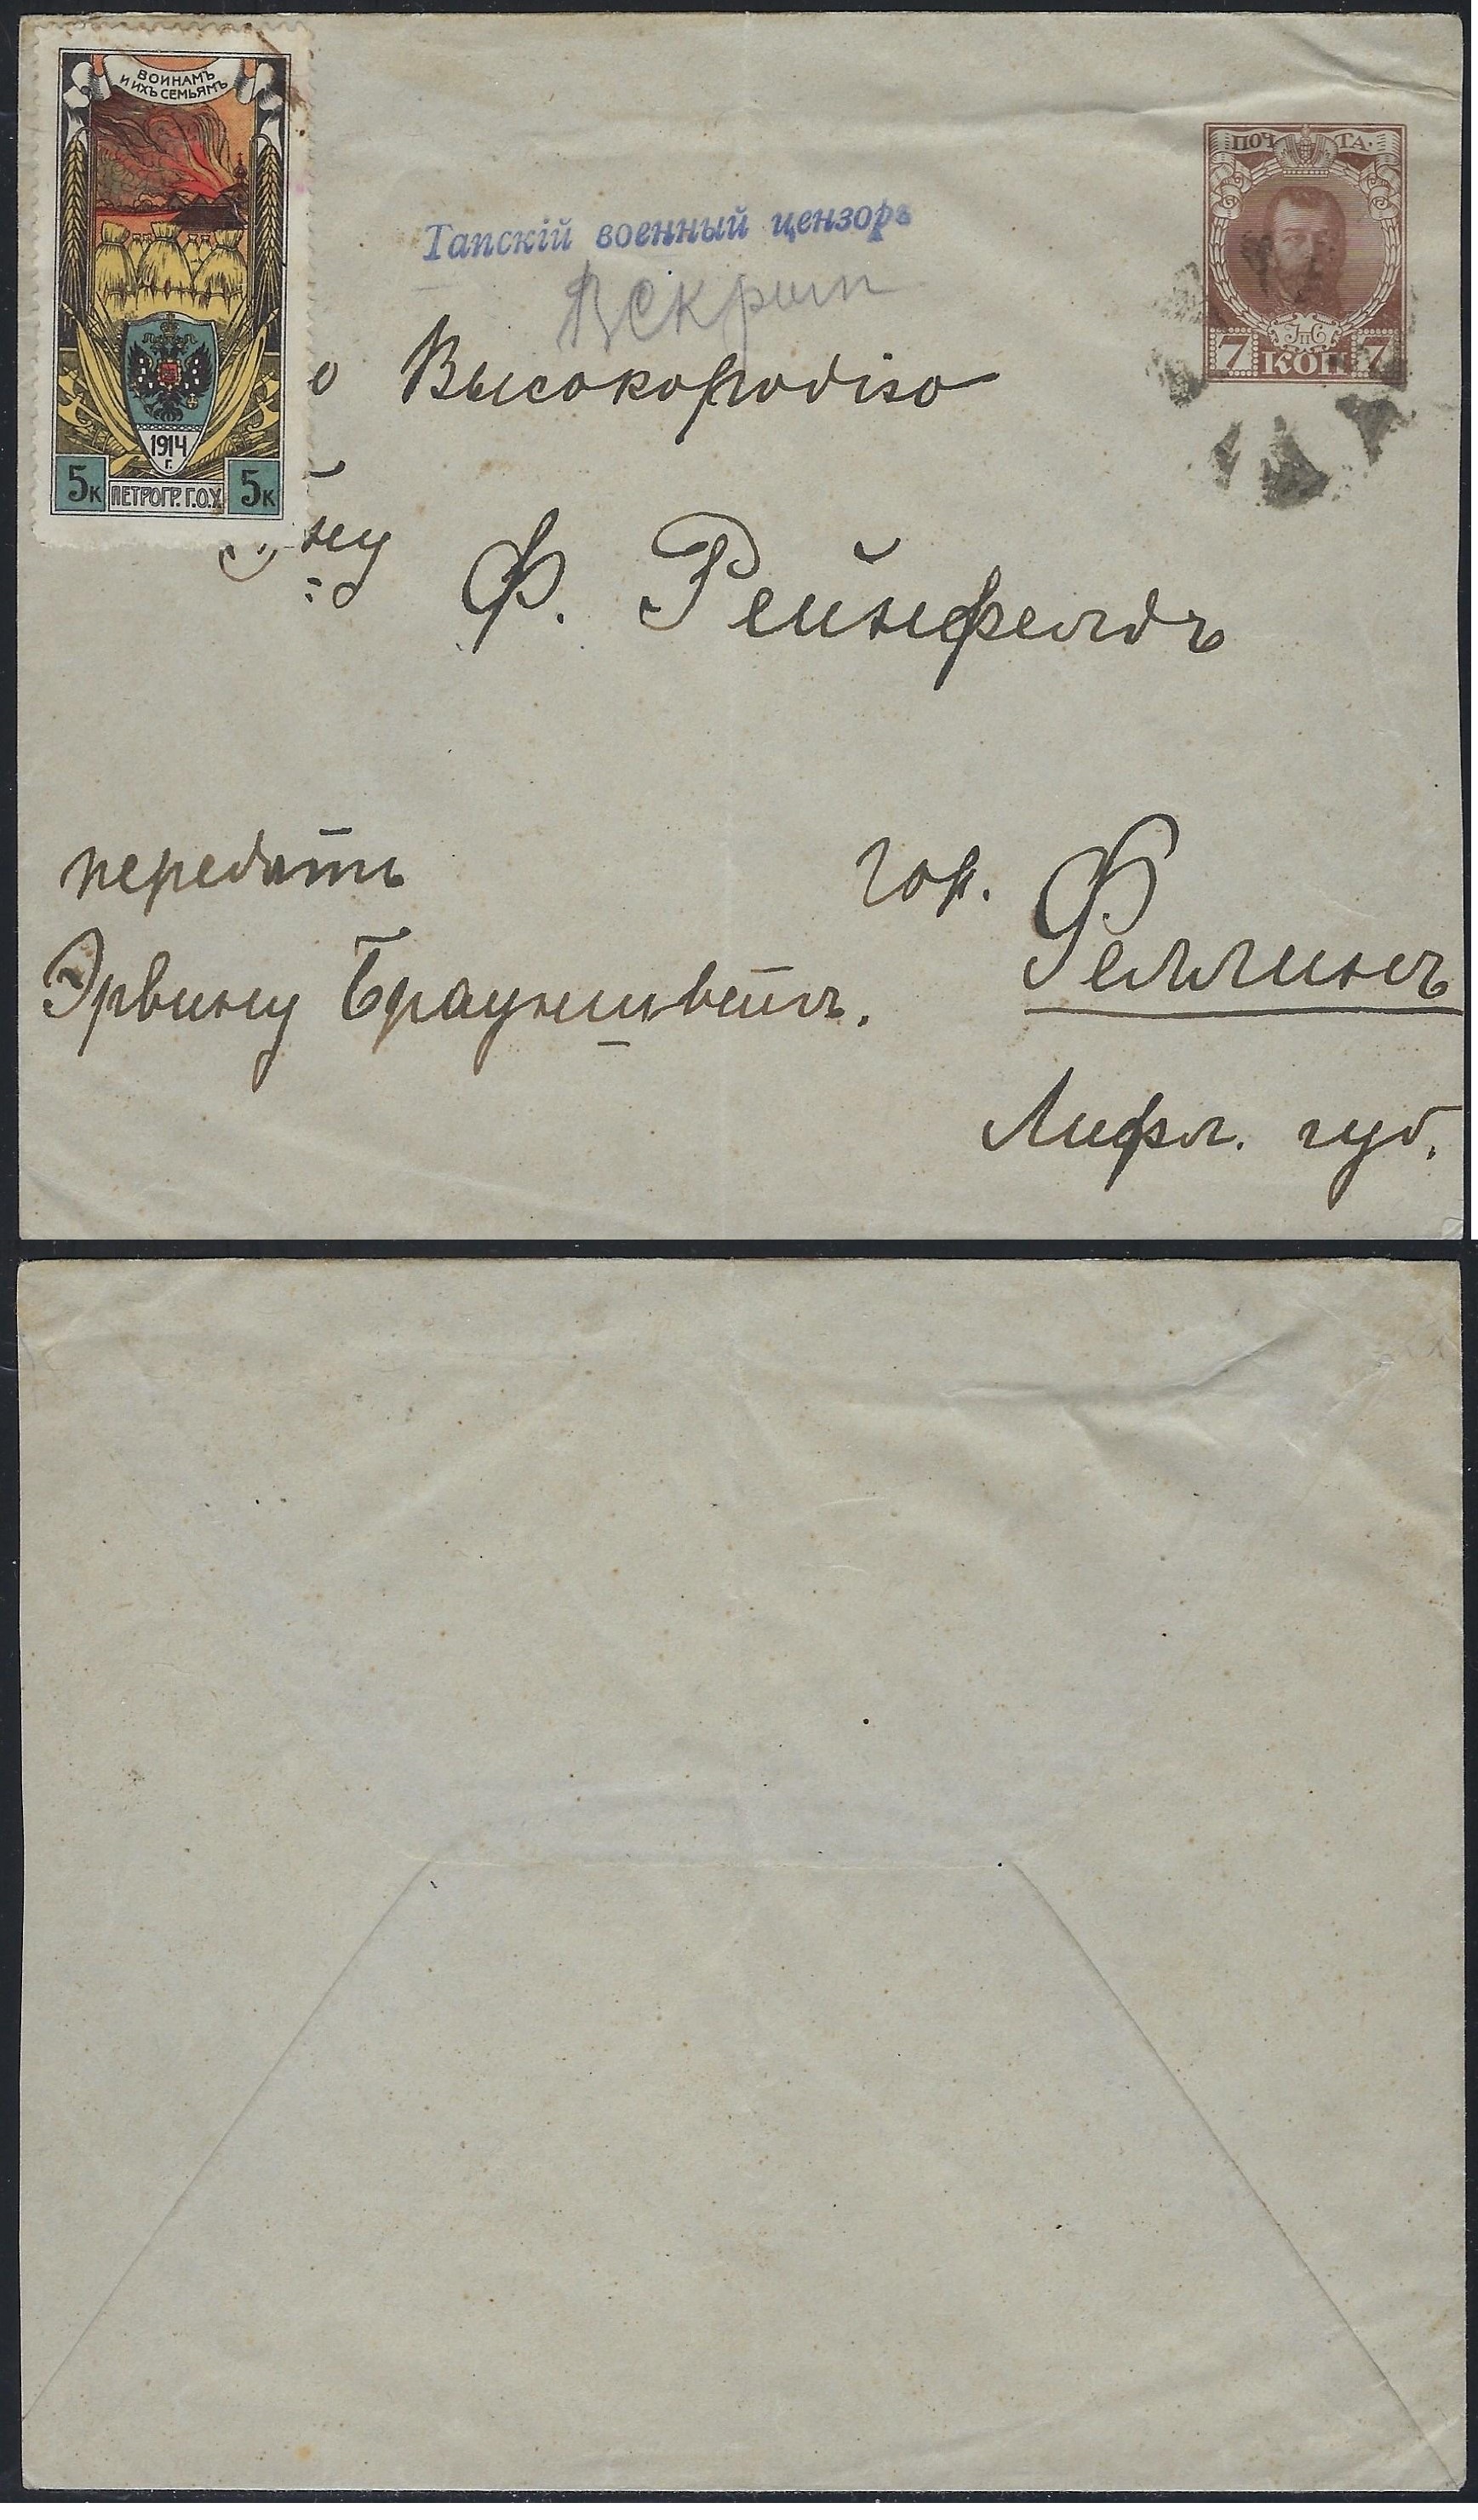 ВОИНАМЪ
И ИХЪ СЕМЬЯМЪ
1914
г.
5к ПЕТРОГР. Г.О.Х. 5к
ПОЧТА.
7 КОП 7
Тапскій военный цензоръ
Вскрыт
о Высокородію
ну Ф. Рейнфельдъ
передать
Эрвину Брауншвейгъ.
гор. Феллинъ
Лифл. губ.